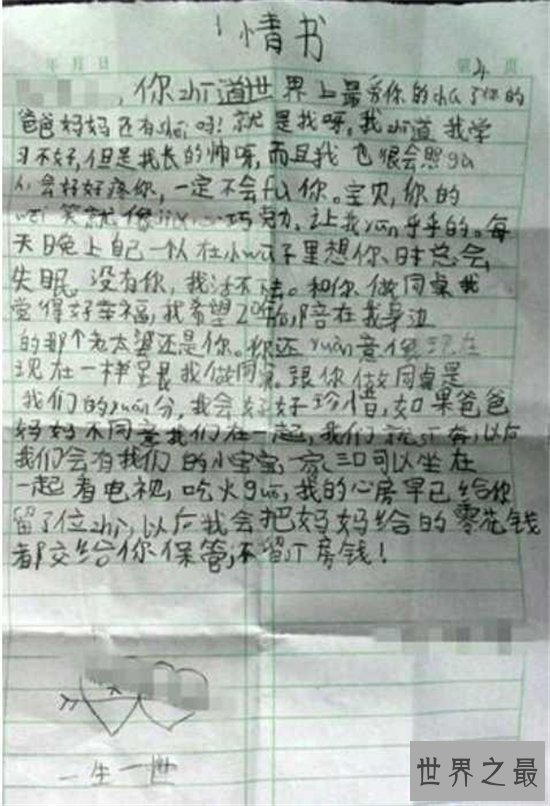 情书
年 月 日 第 4 页
，你zhī道世界上最爱你的 了你的
爸爸妈妈还有shéi吗！就是我呀，我zhī道我学
习不好，但是我长的帅呀，而且我也很会照gu
会好好疼你，一定不会fù你。宝贝，你的
笑就像 巧克力，让我ruǎn乎乎的。每
天晚上自己一个人在小 子里想你、时总会，
失眠，没有你，我活不 。和你做同桌我
觉得好幸福，我希望 后，陪在我身边
的那个老太婆还是你。你还yuàn意像现在
现在一样 跟我做同桌 跟你做同桌是
我们的yuán分，我会好好珍惜，如果爸爸
妈妈不同意我们在一起，我们就 奔，以后
我们会有我们的小宝宝，一家三口可以坐在
一起看电视，吃火guō，我的心房早已给你
留了位zhi，以后我会把妈妈给的零花钱
都交给你保管，不留 房钱！
一生一世
世界之最